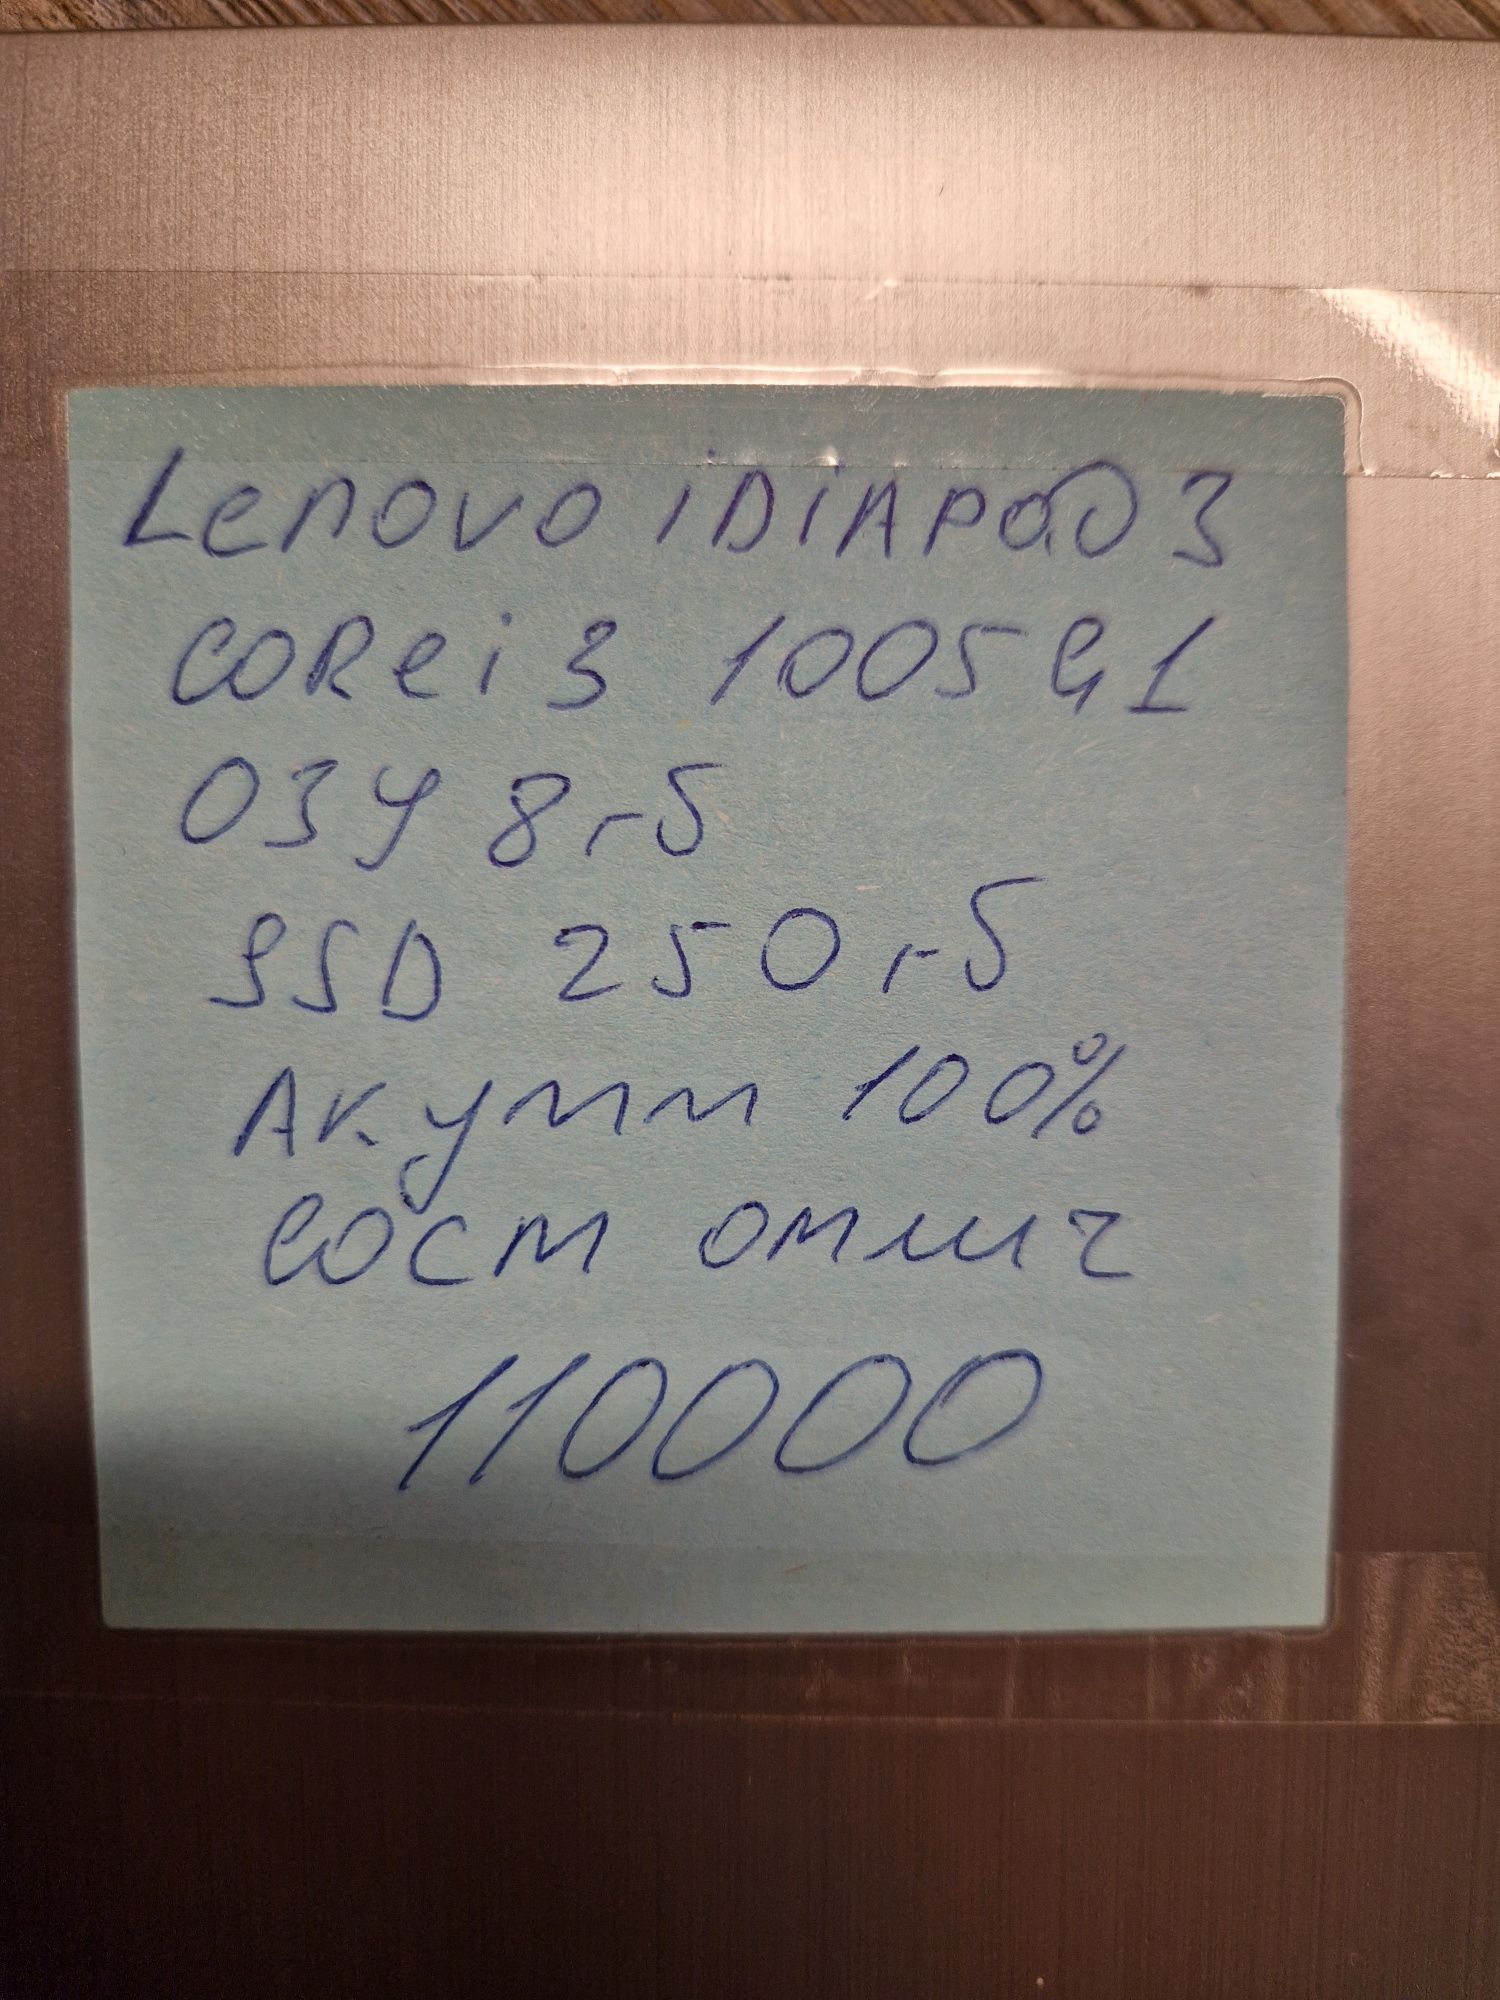 Lenovo iDiAPAD 3
CORe i 3 1005G1
ОЗУ 8 гб
SSD 250 гб
Акумм 100%
Сост отлич
110000